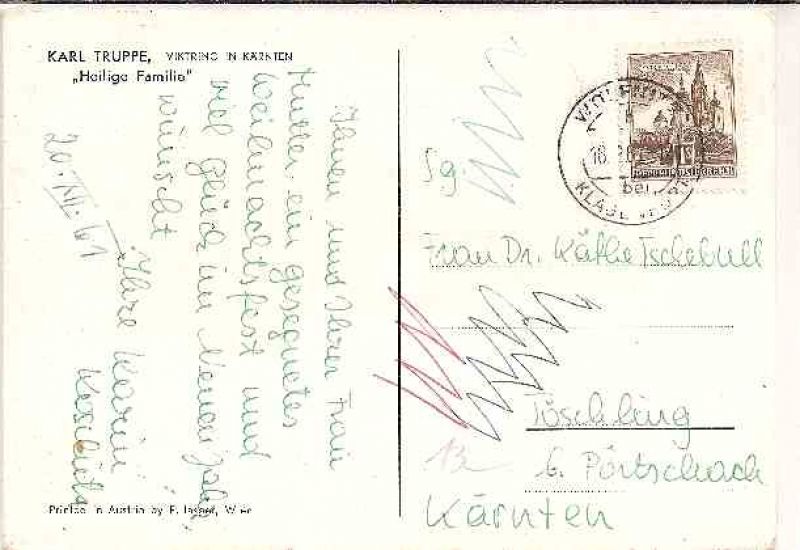 KARL TRUPPE, VIKTRING IN KÄRNTEN
„Heilige Familie"
Ihnen und Ihrer Frau
Mutter ein gesegnetes
Weihnachtsfest und
viel Glück im Neuen Jahr
wünscht
Ihre Karin
20. XII. 61
Printed in Austria by F. Wien
Sg.
Frau Dr. Käthe Tschebull
Töschling
b. Pörtschach
Kärnten
13
bei
KLAGENFURT
REPUBLIK ÖSTERREICH